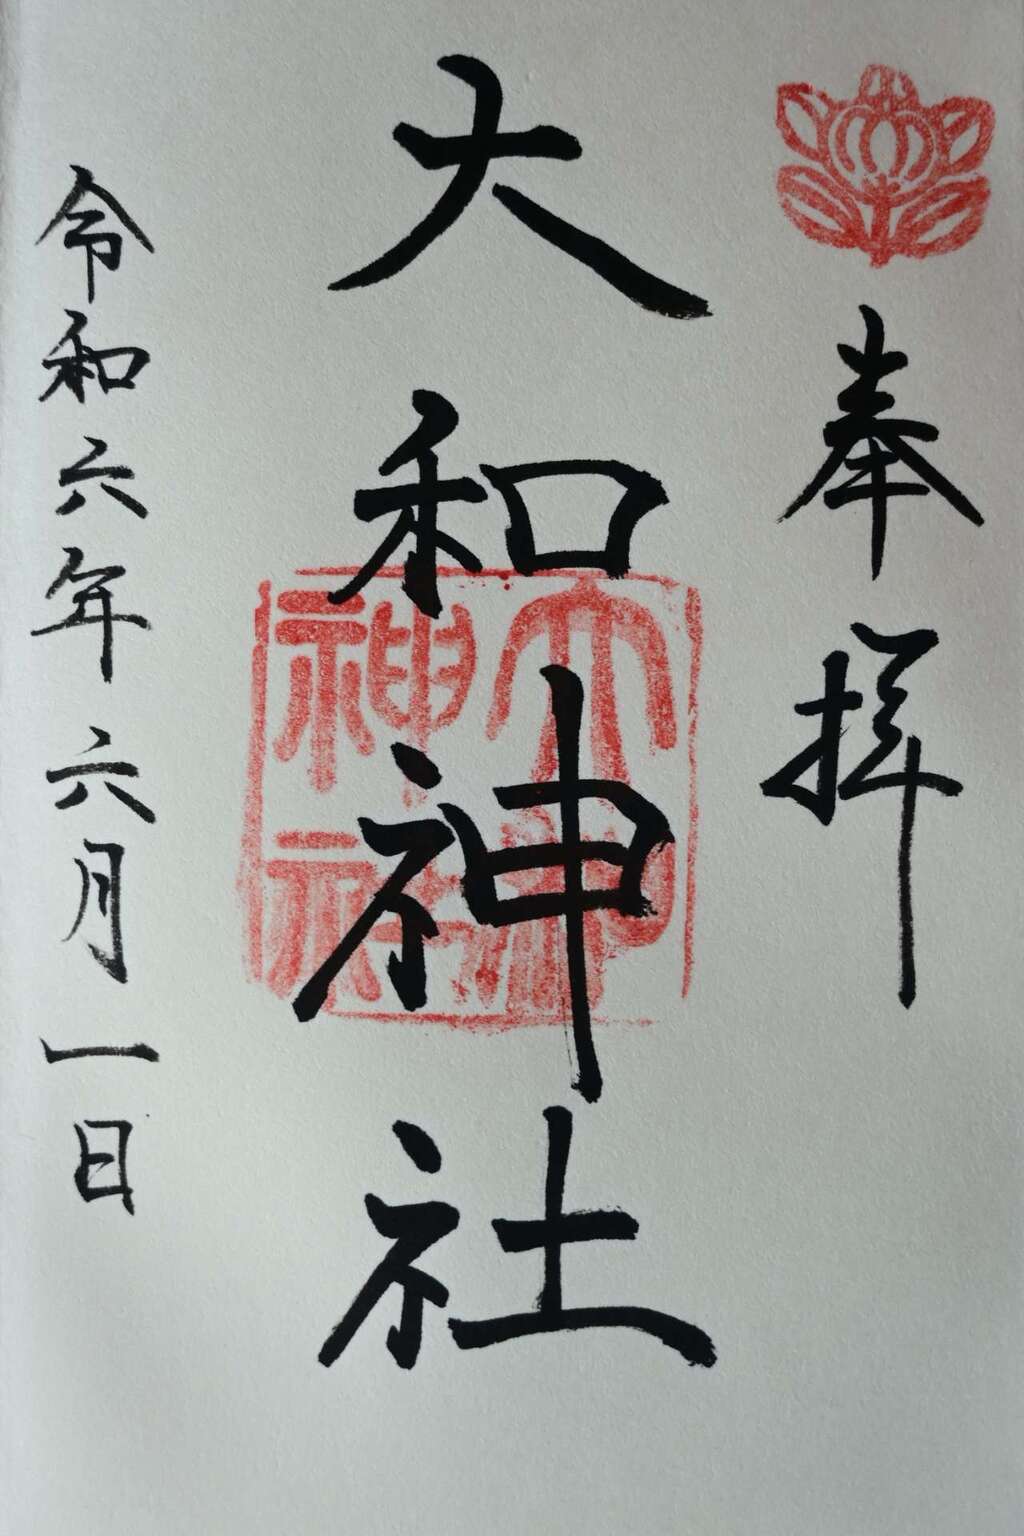 奉拝
大和神社
大和神社
令和六年六月一日